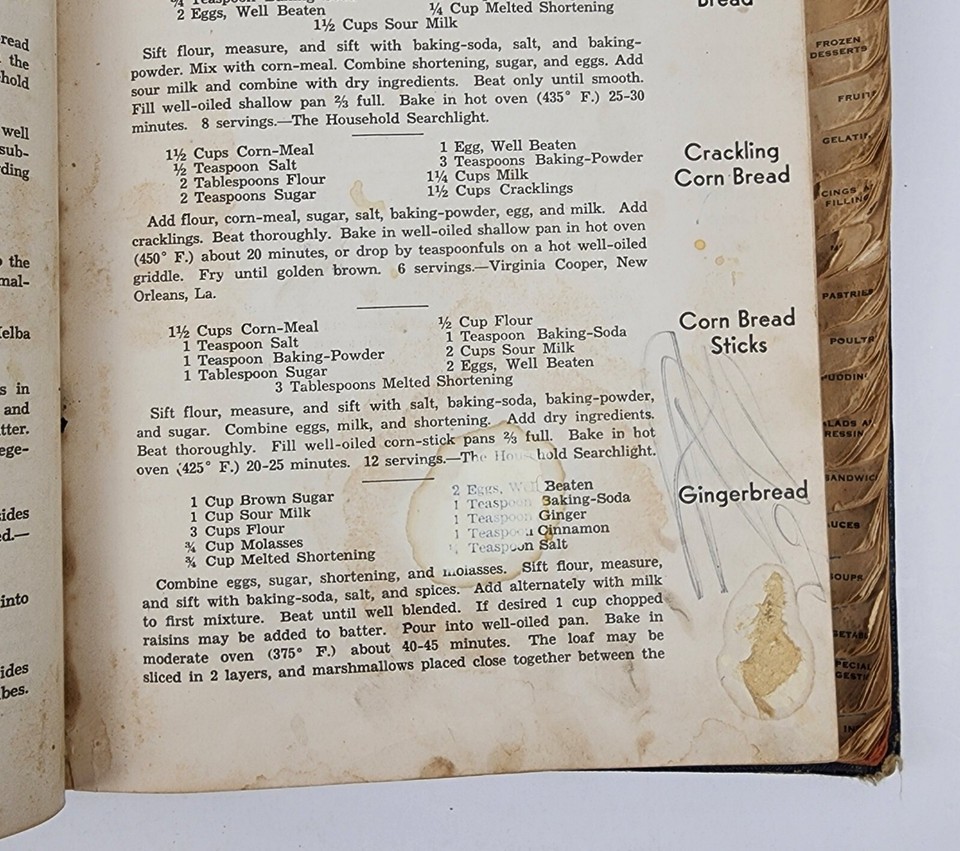 read
the
hold
well
sub-
ding
the
mal-
elba
s in
and
tter.
ege-
sides
d.—
into
ides
bes.
Bread
2 Eggs, Well Beaten ¼ Cup Melted Shortening
1½ Cups Sour Milk
Sift flour, measure, and sift with baking-soda, salt, and baking-
powder. Mix with corn-meal. Combine shortening, sugar, and eggs. Add
sour milk and combine with dry ingredients. Beat only until smooth.
Fill well-oiled shallow pan ⅔ full. Bake in hot oven (435° F.) 25-30
minutes. 8 servings.—The Household Searchlight.
Crackling
Corn Bread
1½ Cups Corn-Meal
½ Teaspoon Salt
2 Tablespoons Flour
2 Teaspoons Sugar
1 Egg, Well Beaten
3 Teaspoons Baking-Powder
1¼ Cups Milk
1½ Cups Cracklings
Add flour, corn-meal, sugar, salt, baking-powder, egg, and milk. Add
cracklings. Beat thoroughly. Bake in well-oiled shallow pan in hot oven
(450° F.) about 20 minutes, or drop by teaspoonfuls on a hot well-oiled
griddle. Fry until golden brown. 6 servings.—Virginia Cooper, New
Orleans, La.
Corn Bread
Sticks
1½ Cups Corn-Meal
1 Teaspoon Salt
1 Teaspoon Baking-Powder
1 Tablespoon Sugar
½ Cup Flour
1 Teaspoon Baking-Soda
2 Cups Sour Milk
2 Eggs, Well Beaten
3 Tablespoons Melted Shortening
Sift flour, measure, and sift with salt, baking-soda, baking-powder,
and sugar. Combine eggs, milk, and shortening. Add dry ingredients.
Beat thoroughly. Fill well-oiled corn-stick pans ⅔ full. Bake in hot
oven (425° F.) 20-25 minutes. 12 servings.—The Household Searchlight.
Gingerbread
1 Cup Brown Sugar
1 Cup Sour Milk
3 Cups Flour
¾ Cup Molasses
¾ Cup Melted Shortening
2 Eggs, Well Beaten
1 Teaspoon Baking-Soda
1 Teaspoon Ginger
1 Teaspoon Cinnamon
Teaspoon Salt
Combine eggs, sugar, shortening, and molasses. Sift flour, measure,
and sift with baking-soda, salt, and spices. Add alternately with milk
to first mixture. Beat until well blended. If desired 1 cup chopped
raisins may be added to batter. Pour into well-oiled pan. Bake in
moderate oven (375° F.) about 40-45 minutes. The loaf may be
sliced in 2 layers, and marshmallows placed close together between the
FROZEN
DESSERTS
FRUIT
GELATI
CINGS &
FILLING
PASTRIE
POULT
UDDIN
LADS A
RESSIN
ANDWIC
UCES
SOUPS
ETAB
PECIAL
GEST
IN